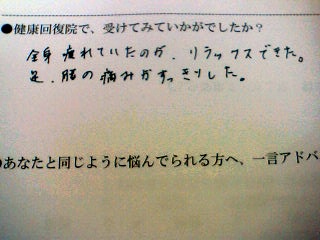 ●健康回復院で、受けてみていかがでしたか？
全身疲れていたのが、リラックスできた。
足、腰の痛みがすっきりした。
●あなたと同じように悩んでられる方へ、一言アドバ